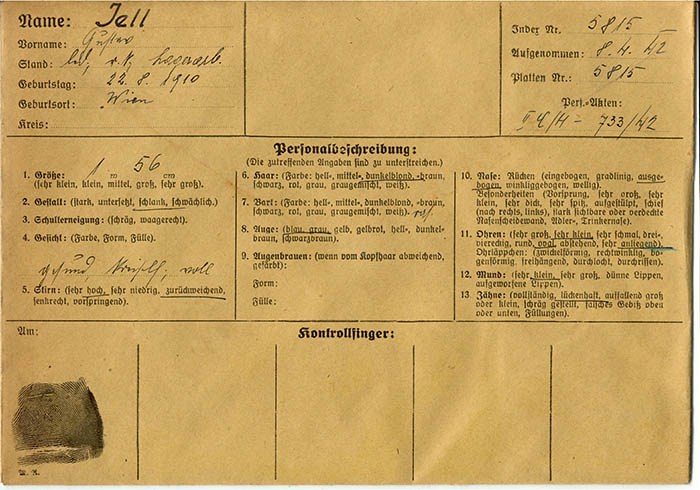 Name: Jell
Vorname: Gustav
Stand: led., r. k., Lagerarb.
Geburtstag: 22. 8. 1910
Geburtsort: Wien
Kreis:
Index Nr. 5815
Aufgenommen: 8. 4. 42
Platten Nr.: 5815
Pers.-Akten:
733/42
Personalbeschreibung:
(Die zutreffenden Angaben sind zu unterstreichen.)
1. Größe: 1 m 56 cm
(sehr klein, klein, mittel, groß, sehr groß).
2. Gestalt: (stark, untersetzt, schlank, schwächlich.)
3. Schulterneigung: (schräg, waagerecht).
4. Gesicht: (Farbe, Form, Fülle).
gesund, voll
5. Stirn: (sehr hoch, sehr niedrig, zurückweichend,
senkrecht, vorspringend).
6. Haar: (Farbe: hell-, mittel-, dunkelblond, -braun,
schwarz, rot, grau, graugemischt, weiß).
7. Bart: (Farbe: hell-, mittel-, dunkelblond, -braun,
schwarz, rot, grau, graugemischt, weiß).
8. Auge: (blau, grau, gelb, gelbrot, hell-, dunkel-
braun, schwarzbraun).
9. Augenbrauen: (wenn vom Kopfhaar abweichend,
gefärbt):
Form:
Fülle:
10. Nase: Rücken (eingebogen, gradlinig, ausge-
bogen, winkliggebogen, wellig).
Besonderheiten (Vorsprung, sehr groß, sehr
klein, sehr dick, sehr spitz, aufgestülpt, schief
(nach rechts, links), stark sichtbare oder verdeckte
Nasenscheidewand, Adler-, Trinkernase).
11. Ohren: (sehr groß, sehr klein, sehr schmal, drei-,
viereckig, rund, oval, abstehend, sehr anliegend).
Ohrläppchen: (zwickelförmig, rechtwinklig, bo-
genförmig, freihängend, durchlocht, durchrissen).
12. Mund: (sehr klein, sehr groß, dünne Lippen,
aufgeworfene Lippen).
13. Zähne: (vollständig, lückenhaft, auffallend groß
oder klein, schräg gestellt, falsches Gebiß oben
oder unten, Füllungen).
Am:
Kontrollfinger: